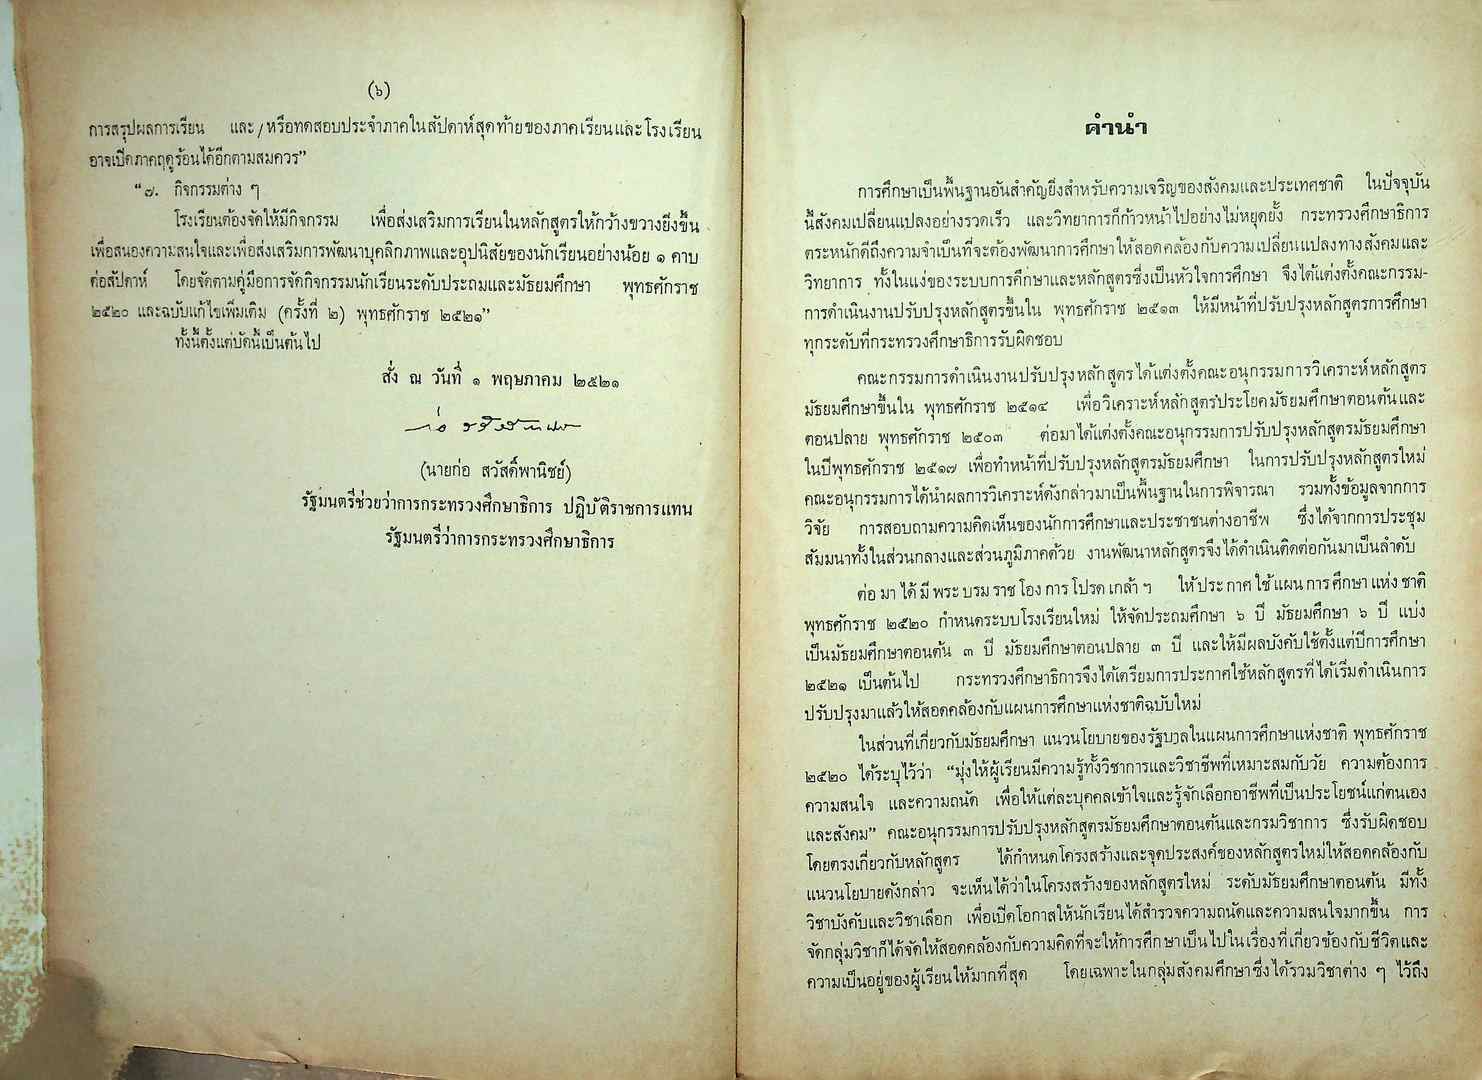 (๖)
การสรุปผลการเรียน และ/หรือทดสอบประจำภาคในสัปดาห์สุดท้ายของภาคเรียนและโรงเรียน
อาจเปิดภาคฤดูร้อนได้อีกตามสมควร”
“๗. กิจกรรมต่าง ๆ
โรงเรียนต้องจัดให้มีกิจกรรม เพื่อส่งเสริมการเรียนในหลักสูตรให้กว้างขวางยิ่งขึ้น
เพื่อสนองความสนใจและเพื่อส่งเสริมการพัฒนาบุคลิกภาพและอุปนิสัยของนักเรียนอย่างน้อย ๑ คาบ
ต่อสัปดาห์ โดยจัดตามคู่มือการจัดกิจกรรมนักเรียนระดับประถมและมัธยมศึกษา พุทธศักราช
๒๕๒๐ และฉบับแก้ไขเพิ่มเติม (ครั้งที่ ๒) พุทธศักราช ๒๕๒๑”
ทั้งนี้ตั้งแต่บัดนี้เป็นต้นไป
สั่ง ณ วันที่ ๑ พฤษภาคม ๒๕๒๑
(นายก่อ สวัสดิ์พาณิชย์)
รัฐมนตรีช่วยว่าการกระทรวงศึกษาธิการ ปฏิบัติราชการแทน
รัฐมนตรีว่าการกระทรวงศึกษาธิการ
คำนำ
การศึกษาเป็นพื้นฐานอันสำคัญยิ่งสำหรับความเจริญของสังคมและประเทศชาติ ในปัจจุบัน
นี้สังคมเปลี่ยนแปลงอย่างรวดเร็ว และวิทยาการก็ก้าวหน้าไปอย่างไม่หยุดยั้ง กระทรวงศึกษาธิการ
ตระหนักดีถึงความจำเป็นที่จะต้องพัฒนาการศึกษาให้สอดคล้องกับความเปลี่ยนแปลงทางสังคมและ
วิทยาการ ทั้งในแง่ของระบบการศึกษาและหลักสูตรซึ่งเป็นหัวใจการศึกษา จึงได้แต่งตั้งคณะกรรม-
การดำเนินงานปรับปรุงหลักสูตรขึ้นใน พุทธศักราช ๒๕๑๓ ให้มีหน้าที่ปรับปรุงหลักสูตรการศึกษา
ทุกระดับที่กระทรวงศึกษาธิการรับผิดชอบ
คณะกรรมการดำเนินงานปรับปรุงหลักสูตรได้แต่งตั้งคณะอนุกรรมการวิเคราะห์หลักสูตร
มัธยมศึกษาขึ้นใน พุทธศักราช ๒๕๑๔ เพื่อวิเคราะห์หลักสูตรประโยคมัธยมศึกษาตอนต้นและ
ตอนปลาย พุทธศักราช ๒๕๐๓ ต่อมาได้แต่งตั้งคณะอนุกรรมการปรับปรุงหลักสูตรมัธยมศึกษา
ในปีพุทธศักราช ๒๕๑๗ เพื่อทำหน้าที่ปรับปรุงหลักสูตรมัธยมศึกษา ในการปรับปรุงหลักสูตรใหม่
คณะอนุกรรมการได้นำผลการวิเคราะห์ดังกล่าวมาเป็นพื้นฐานในการพิจารณา รวมทั้งข้อมูลจากการ
วิจัย การสอบถามความคิดเห็นของนักการศึกษาและประชาชนต่างอาชีพ ซึ่งได้จากการประชุม
สัมมนาทั้งในส่วนกลางและส่วนภูมิภาคด้วย งานพัฒนาหลักสูตรจึงได้ดำเนินติดต่อกันมาเป็นลำดับ
ต่อมาได้มีพระบรมราชโองการโปรดเกล้าฯ ให้ประกาศใช้แผนการศึกษาแห่งชาติ
พุทธศักราช ๒๕๒๐ กำหนดระบบโรงเรียนใหม่ ให้จัดประถมศึกษา ๖ ปี มัธยมศึกษา ๖ ปี แบ่ง
เป็นมัธยมศึกษาตอนต้น ๓ ปี มัธยมศึกษาตอนปลาย ๓ ปี และให้มีผลบังคับใช้ตั้งแต่ปีการศึกษา
๒๕๒๑ เป็นต้นไป กระทรวงศึกษาธิการจึงได้เตรียมการประกาศใช้หลักสูตรที่ได้เริ่มดำเนินการ
ปรับปรุงมาแล้วให้สอดคล้องกับแผนการศึกษาแห่งชาติฉบับใหม่
ในส่วนที่เกี่ยวกับมัธยมศึกษา แนวนโยบายของรัฐบาลในแผนการศึกษาแห่งชาติ พุทธศักราช
๒๕๒๐ ได้ระบุไว้ว่า “มุ่งให้ผู้เรียนมีความรู้ทั้งวิชาการและวิชาชีพที่เหมาะสมกับวัย ความต้องการ
ความสนใจ และความถนัด เพื่อให้แต่ละบุคคลเข้าใจและรู้จักเลือกอาชีพที่เป็นประโยชน์แก่ตนเอง
และสังคม” คณะอนุกรรมการปรับปรุงหลักสูตรมัธยมศึกษาตอนต้นและกรมวิชาการ ซึ่งรับผิดชอบ
โดยตรงเกี่ยวกับหลักสูตร ได้กำหนดโครงสร้างและจุดประสงค์ของหลักสูตรใหม่ให้สอดคล้องกับ
แนวนโยบายดังกล่าว จะเห็นได้ว่าในโครงสร้างของหลักสูตรใหม่ ระดับมัธยมศึกษาตอนต้น มีทั้ง
วิชาบังคับและวิชาเลือก เพื่อเปิดโอกาสให้นักเรียนได้สำรวจความถนัดและความสนใจมากขึ้น การ
จัดกลุ่มวิชาก็ได้จัดให้สอดคล้องกับความคิดที่จะให้การศึกษาเป็นไปในเรื่องที่เกี่ยวข้องกับชีวิตและ
ความเป็นอยู่ของผู้เรียนให้มากที่สุด โดยเฉพาะในกลุ่มสังคมศึกษาซึ่งได้รวมวิชาต่าง ๆ ไว้ถึง